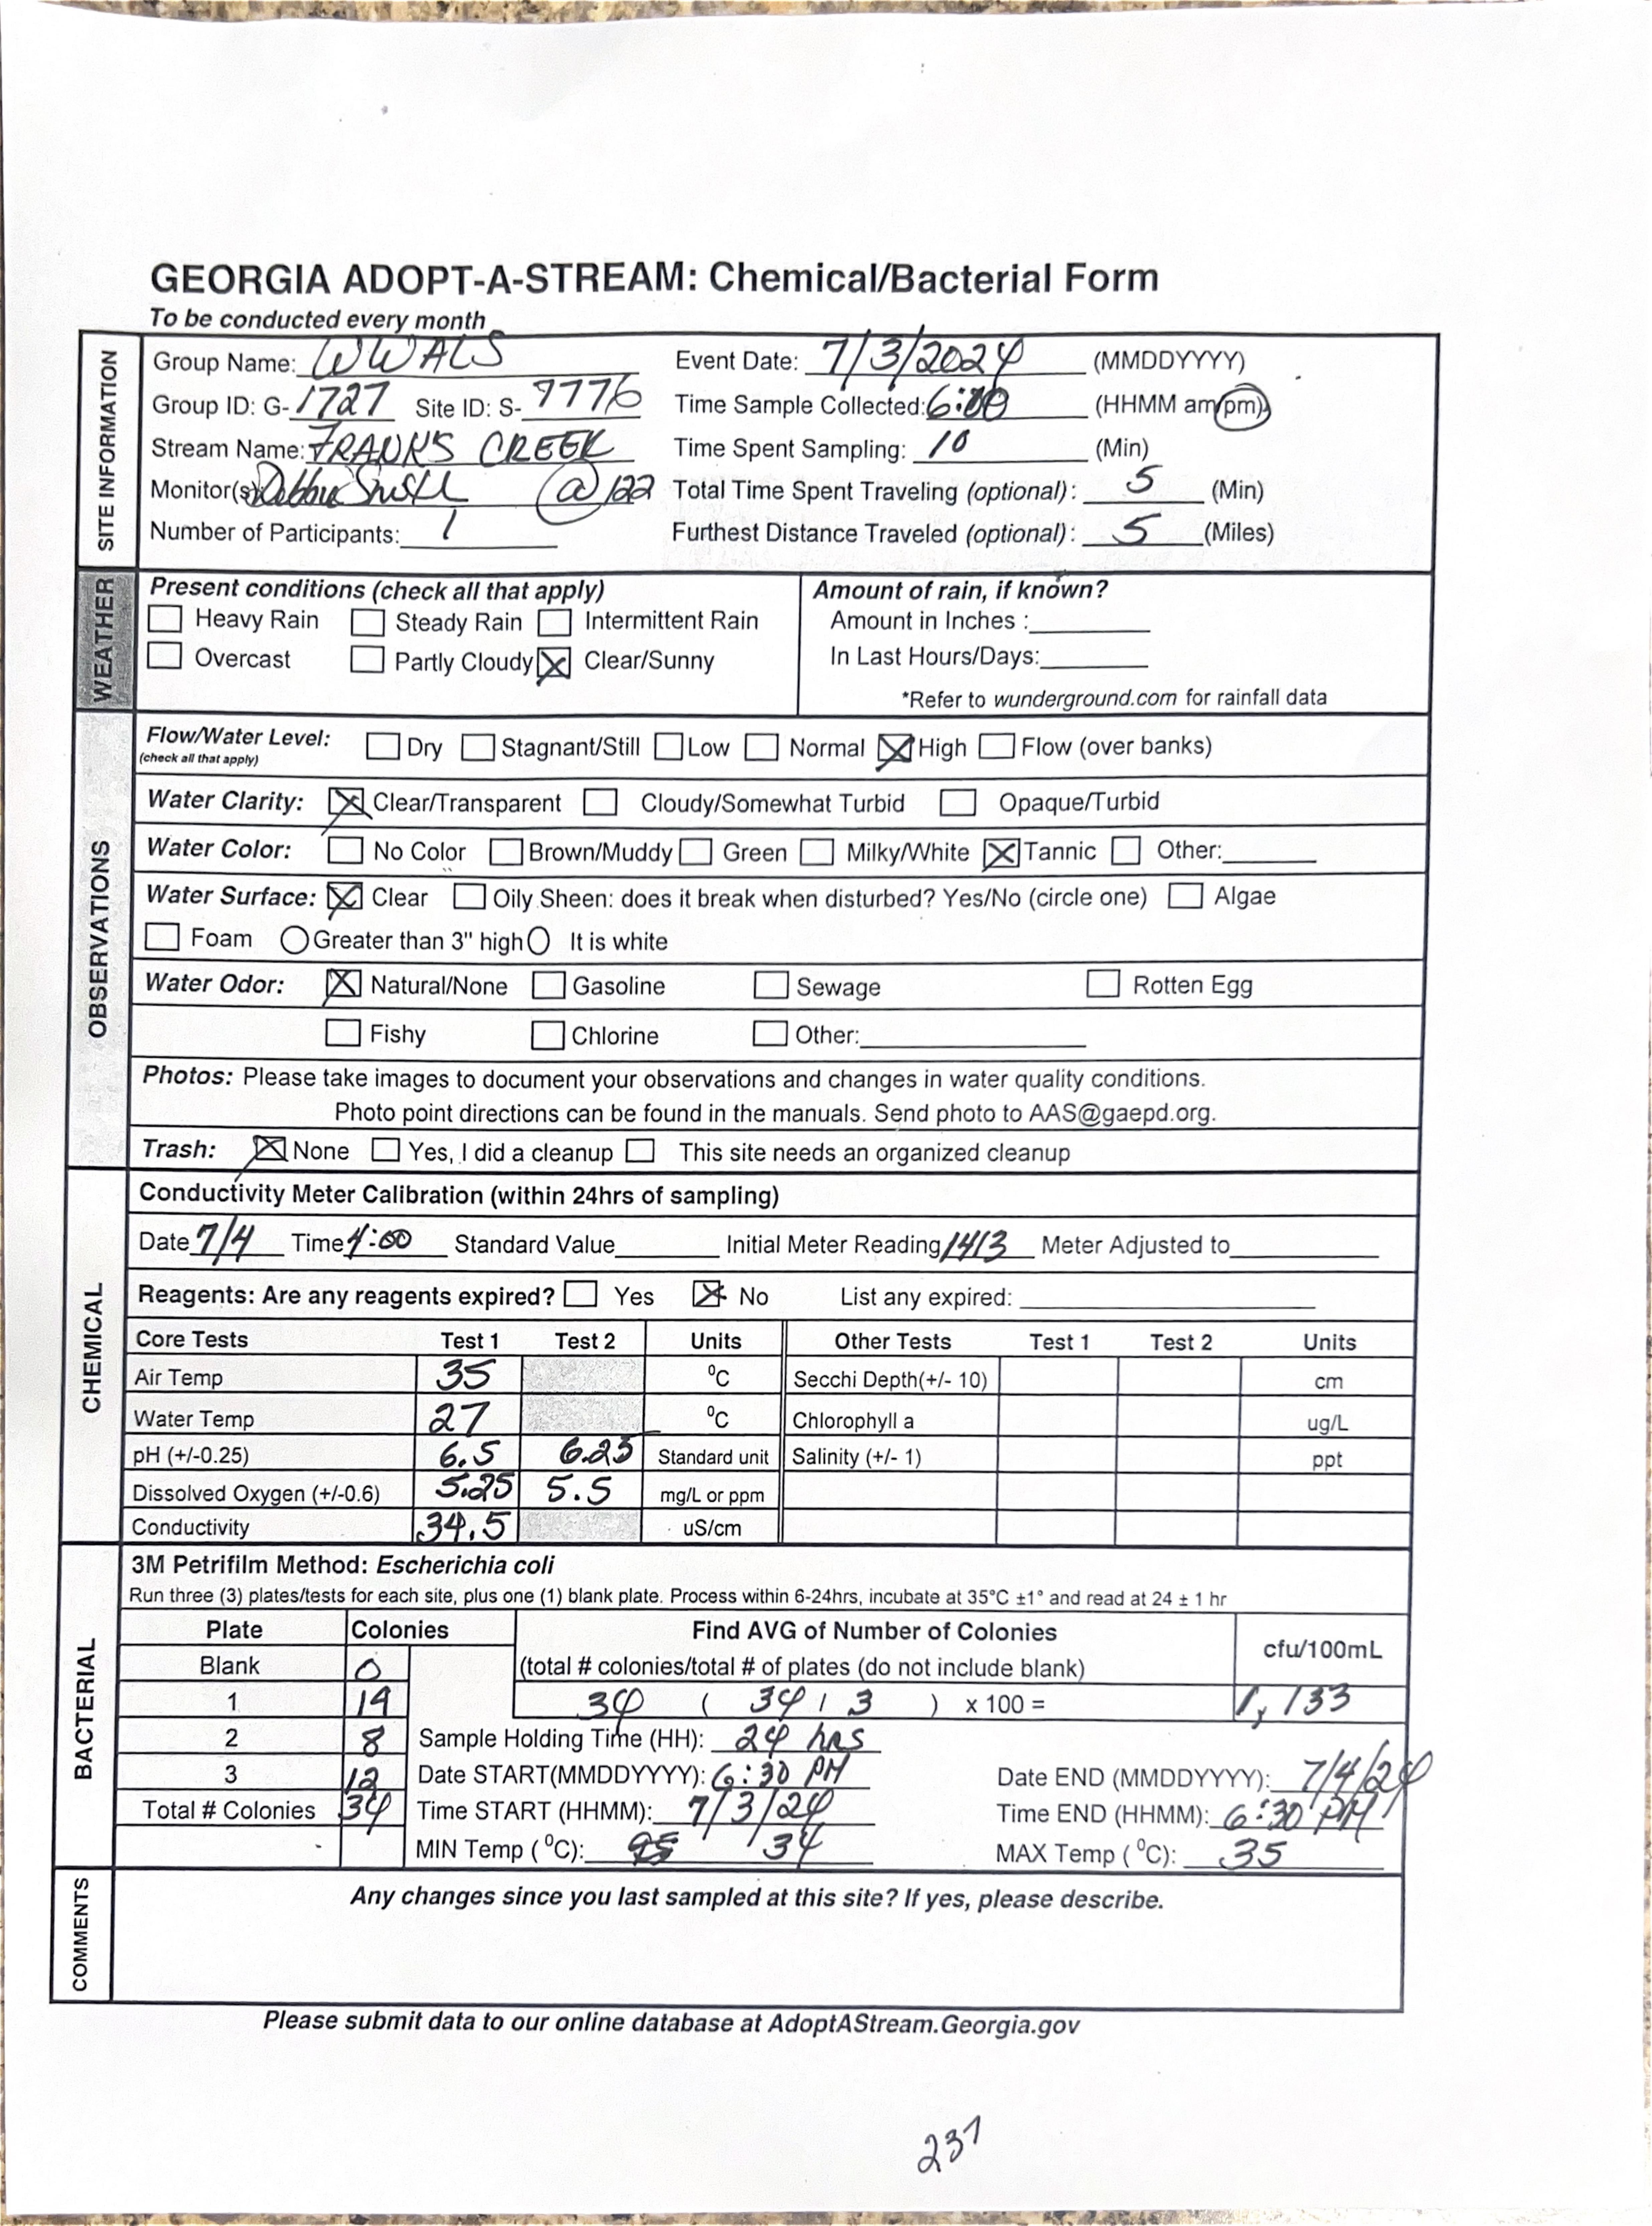 GEORGIA ADOPT-A-STREAM: Chemical/Bacterial Form
To be conducted every month
SITE INFORMATION
Group Name: WWALS Event Date: 7/3/2024 (MMDDYYYY)
Group ID: G-1727 Site ID: S- 7776 Time Sample Collected: 6:00 (HHMM am/pm)
Stream Name: FRANKS CREEK Time Spent Sampling: 10 (Min)
Monitor(s) Debbie @ 122 Total Time Spent Traveling (optional): 5 (Min)
Number of Participants: 1 Furthest Distance Traveled (optional): 5 (Miles)
WEATHER
Present conditions (check all that apply) Amount of rain, if known?
Heavy Rain Steady Rain Intermittent Rain Amount in Inches :
Overcast Partly Cloudy Clear/Sunny In Last Hours/Days:
*Refer to wunderground.com for rainfall data
OBSERVATIONS
Flow/Water Level: Dry Stagnant/Still Low Normal High Flow (over banks)
(check all that apply)
Water Clarity: Clear/Transparent Cloudy/Somewhat Turbid Opaque/Turbid
Water Color: No Color Brown/Muddy Green Milky/White Tannic Other:
Water Surface: Clear Oily Sheen: does it break when disturbed? Yes/No (circle one) Algae
Foam Greater than 3" high It is white
Water Odor: Natural/None Gasoline Sewage Rotten Egg
Fishy Chlorine Other:
Photos: Please take images to document your observations and changes in water quality conditions.
Photo point directions can be found in the manuals. Send photo to AAS@gaepd.org.
Trash: None Yes, I did a cleanup This site needs an organized cleanup
CHEMICAL
Conductivity Meter Calibration (within 24hrs of sampling)
Date 7/4 Time 4:00 Standard Value Initial Meter Reading 1413 Meter Adjusted to
Reagents: Are any reagents expired? Yes No List any expired:
Core Tests Test 1 Test 2 Units Other Tests Test 1 Test 2 Units
Air Temp 35 °C Secchi Depth(+/- 10) cm
Water Temp 27 °C Chlorophyll a ug/L
pH (+/-0.25) 6.5 6.25 Standard unit Salinity (+/- 1) ppt
Dissolved Oxygen (+/-0.6) 5.25 5.5 mg/L or ppm
Conductivity 34.5 uS/cm
BACTERIAL
3M Petrifilm Method: Escherichia coli
Run three (3) plates/tests for each site, plus one (1) blank plate. Process within 6-24hrs, incubate at 35°C ±1° and read at 24 ± 1 hr
Plate Colonies Find AVG of Number of Colonies cfu/100mL
Blank 0 (total # colonies/total # of plates (do not include blank)
1 14 34 ( 34 / 3 ) x 100 = 1,133
2 8 Sample Holding Time (HH): 24 hrs
3 12 Date START(MMDDYYYY): 6:30 PM Date END (MMDDYYYY): 7/4/24
Total # Colonies 34 Time START (HHMM): 7/3/24 Time END (HHMM): 6:30 PM
MIN Temp (°C): 34 MAX Temp (°C): 35
COMMENTS
Any changes since you last sampled at this site? If yes, please describe.
Please submit data to our online database at AdoptAStream.Georgia.gov
237